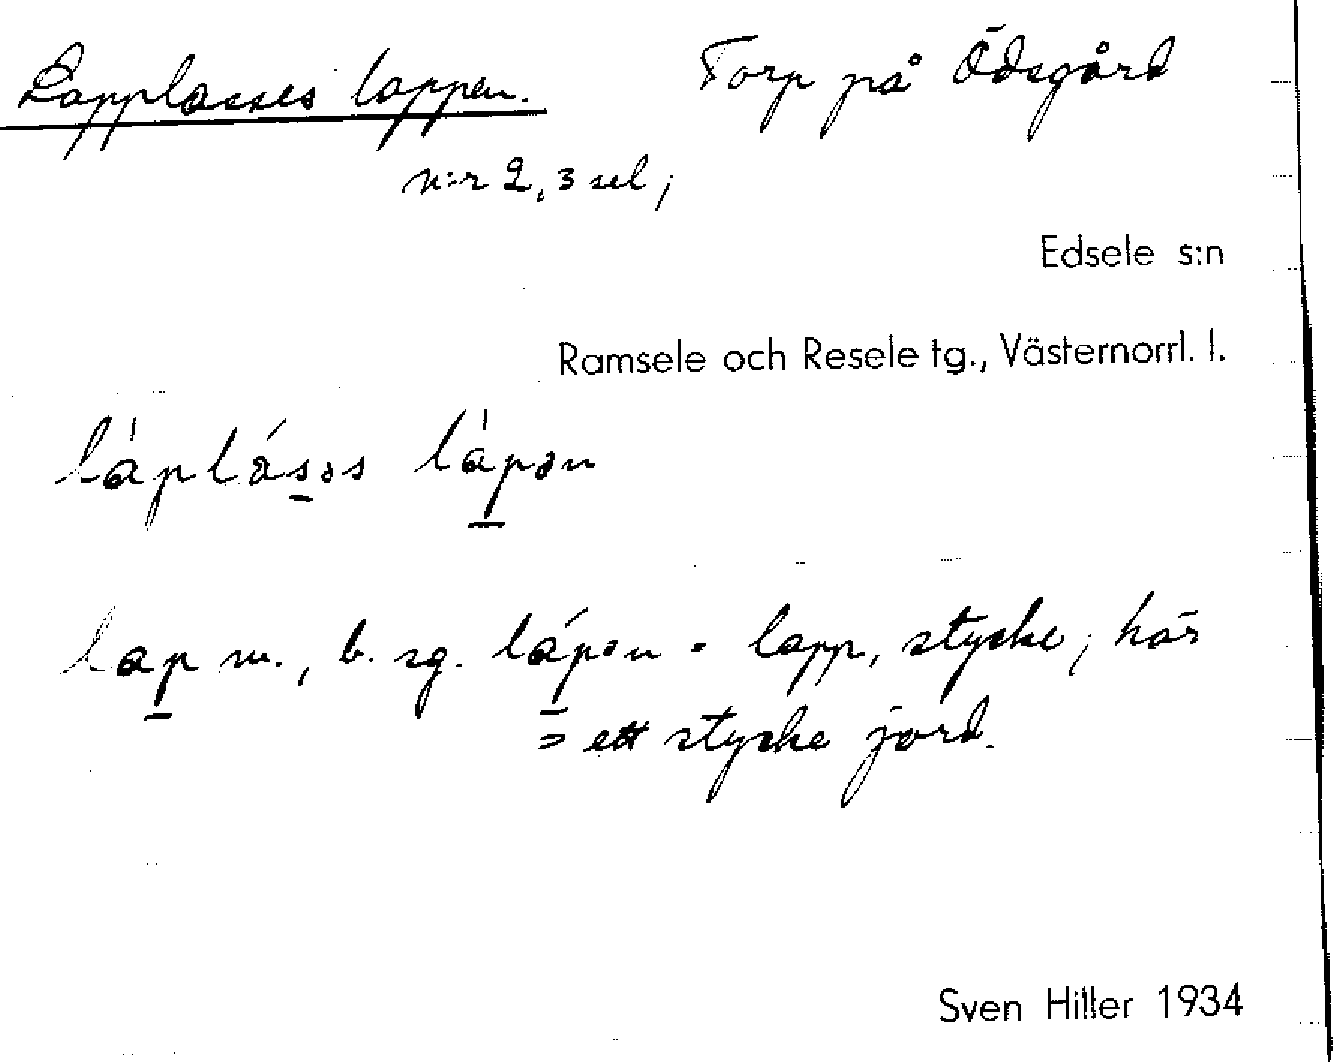 Lapplasses lappen. Torp på Ödsgård
n:r 2, 3 sel;
Edsele s:n
Ramsele och Resele tg., Västernorrl. l.
làplásəs làpən
lap m., b. sg. lápən = lapp, stycke; här
= ett stycke jord.
Sven Hiller 1934